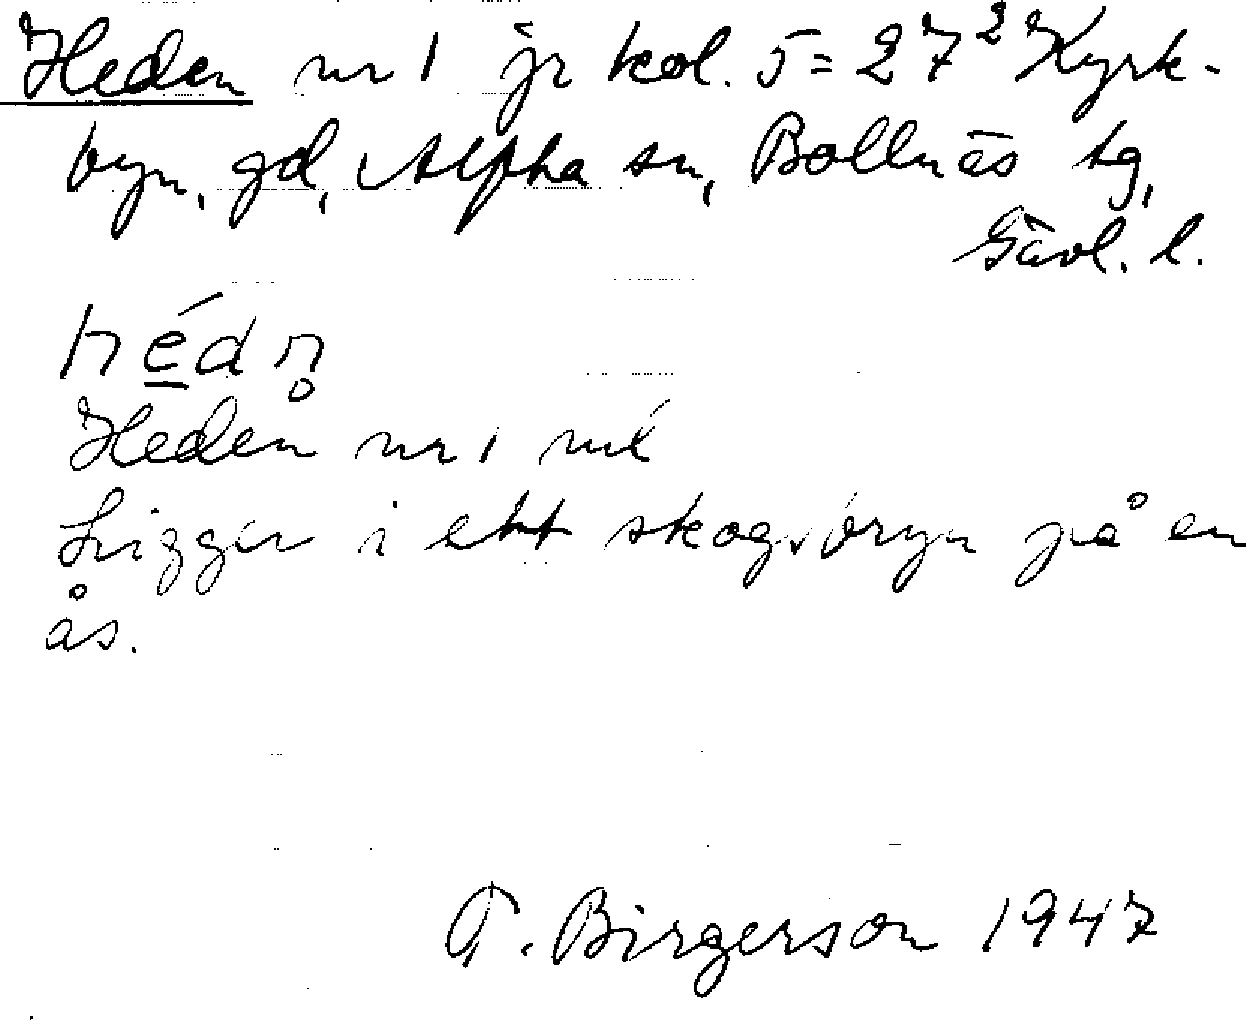 Heden nr 1 jr kol. 5 = 27² Kyrk-
byn, gd, Alfta sn, Bollnäs tg,
Gävl. l.
hédn̥
Heden nr 1
Ligger i ett skogsbryn på en
ås.
T. Birgerson 1947